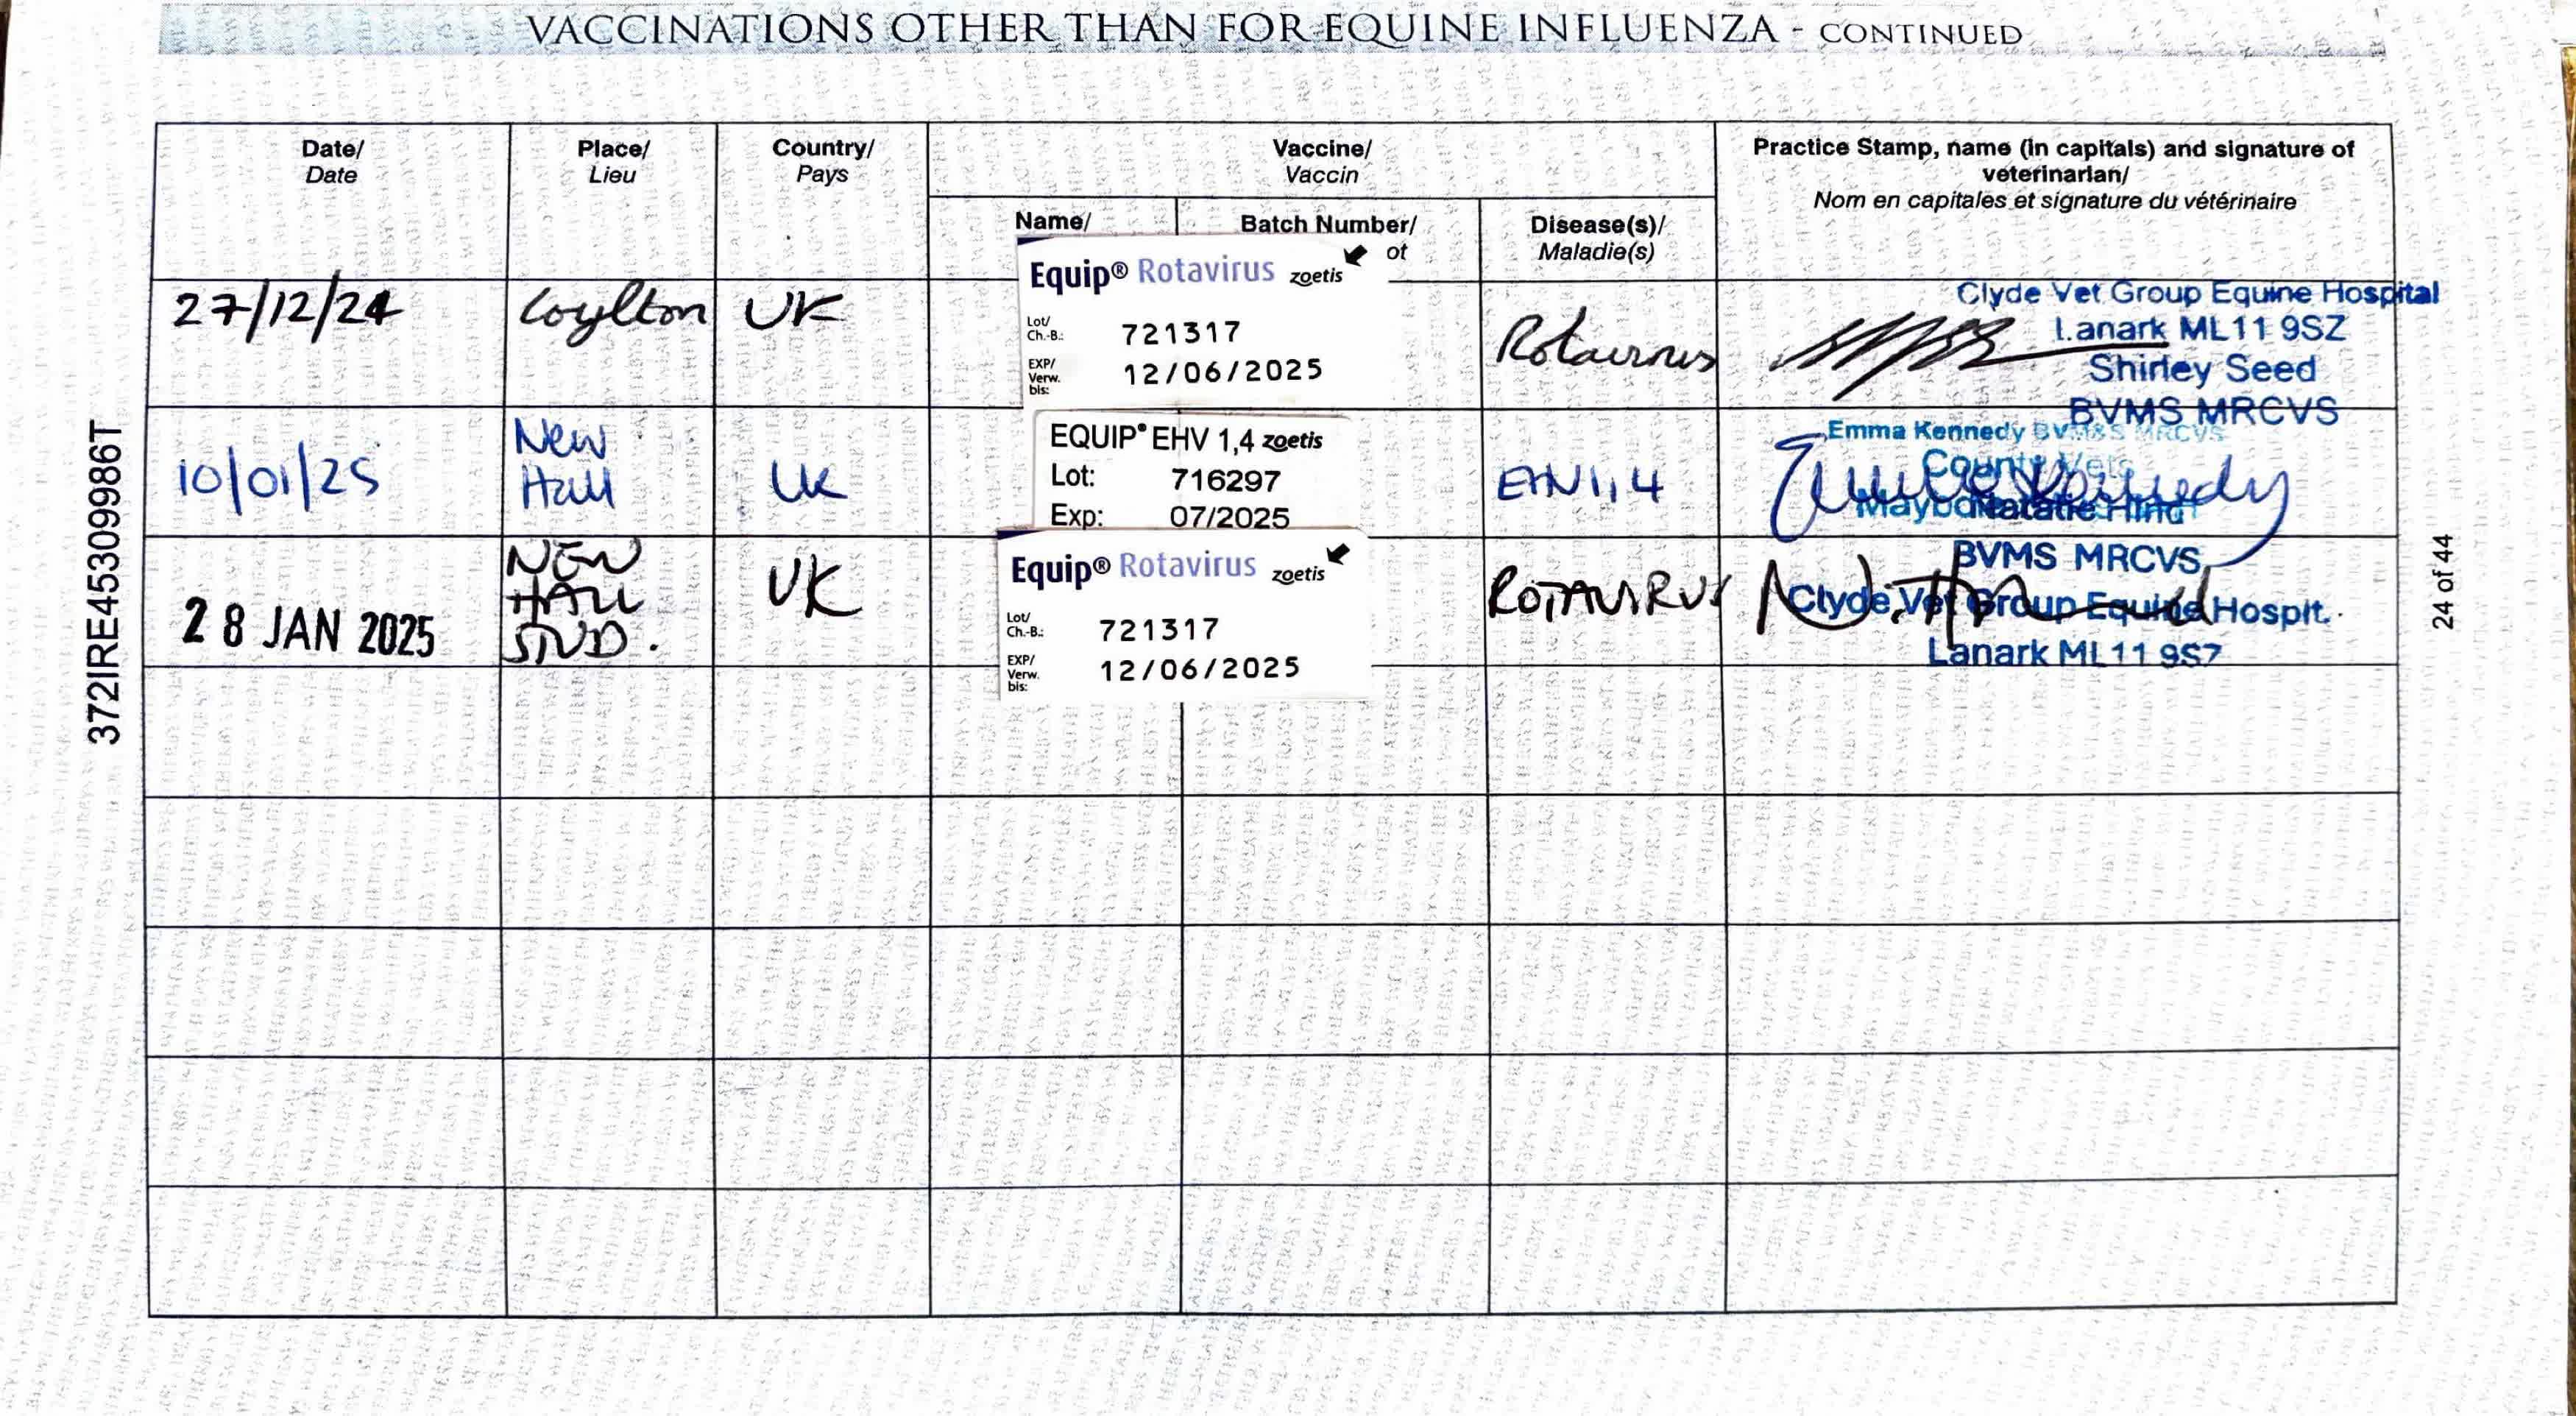 VACCINATIONS OTHER THAN FOR EQUINE INFLUENZA - CONTINUED
Date/
Date
Place/
Lieu
Country/
Pays
Vaccine/
Vaccin
Practice Stamp, name (in capitals) and signature of
veterinarian/
Nom en capitales et signature du vétérinaire
Name/
Batch Number/
ot
Disease(s)/
Maladie(s)
27/12/24
Coylton
UK
Equip® Rotavirus zoetis
Lot/
Ch.-B.:
721317
EXP/
Verw.
bis:
12/06/2025
Rotavirus
Clyde Vet Group Equine Hospital
Lanark ML11 9SZ
Shirley Seed
BVMS MRCVS
10/01/25
New
Hall
UK
EQUIP® EHV 1,4 zoetis
Lot: 716297
Exp: 07/2025
EHV1,4
Emma Kennedy BVM&S MRCVS
County Vets
28 JAN 2025
NEW
HALL
STUD.
UK
Equip® Rotavirus zoetis
Lot/
Ch.-B.:
721317
EXP/
Verw.
bis:
12/06/2025
ROTAVIRUS
Natalie Hind
BVMS MRCVS
Clyde Vet Group Equine Hospit
Lanark ML11 9SZ
372IRE45309986T
24 of 44